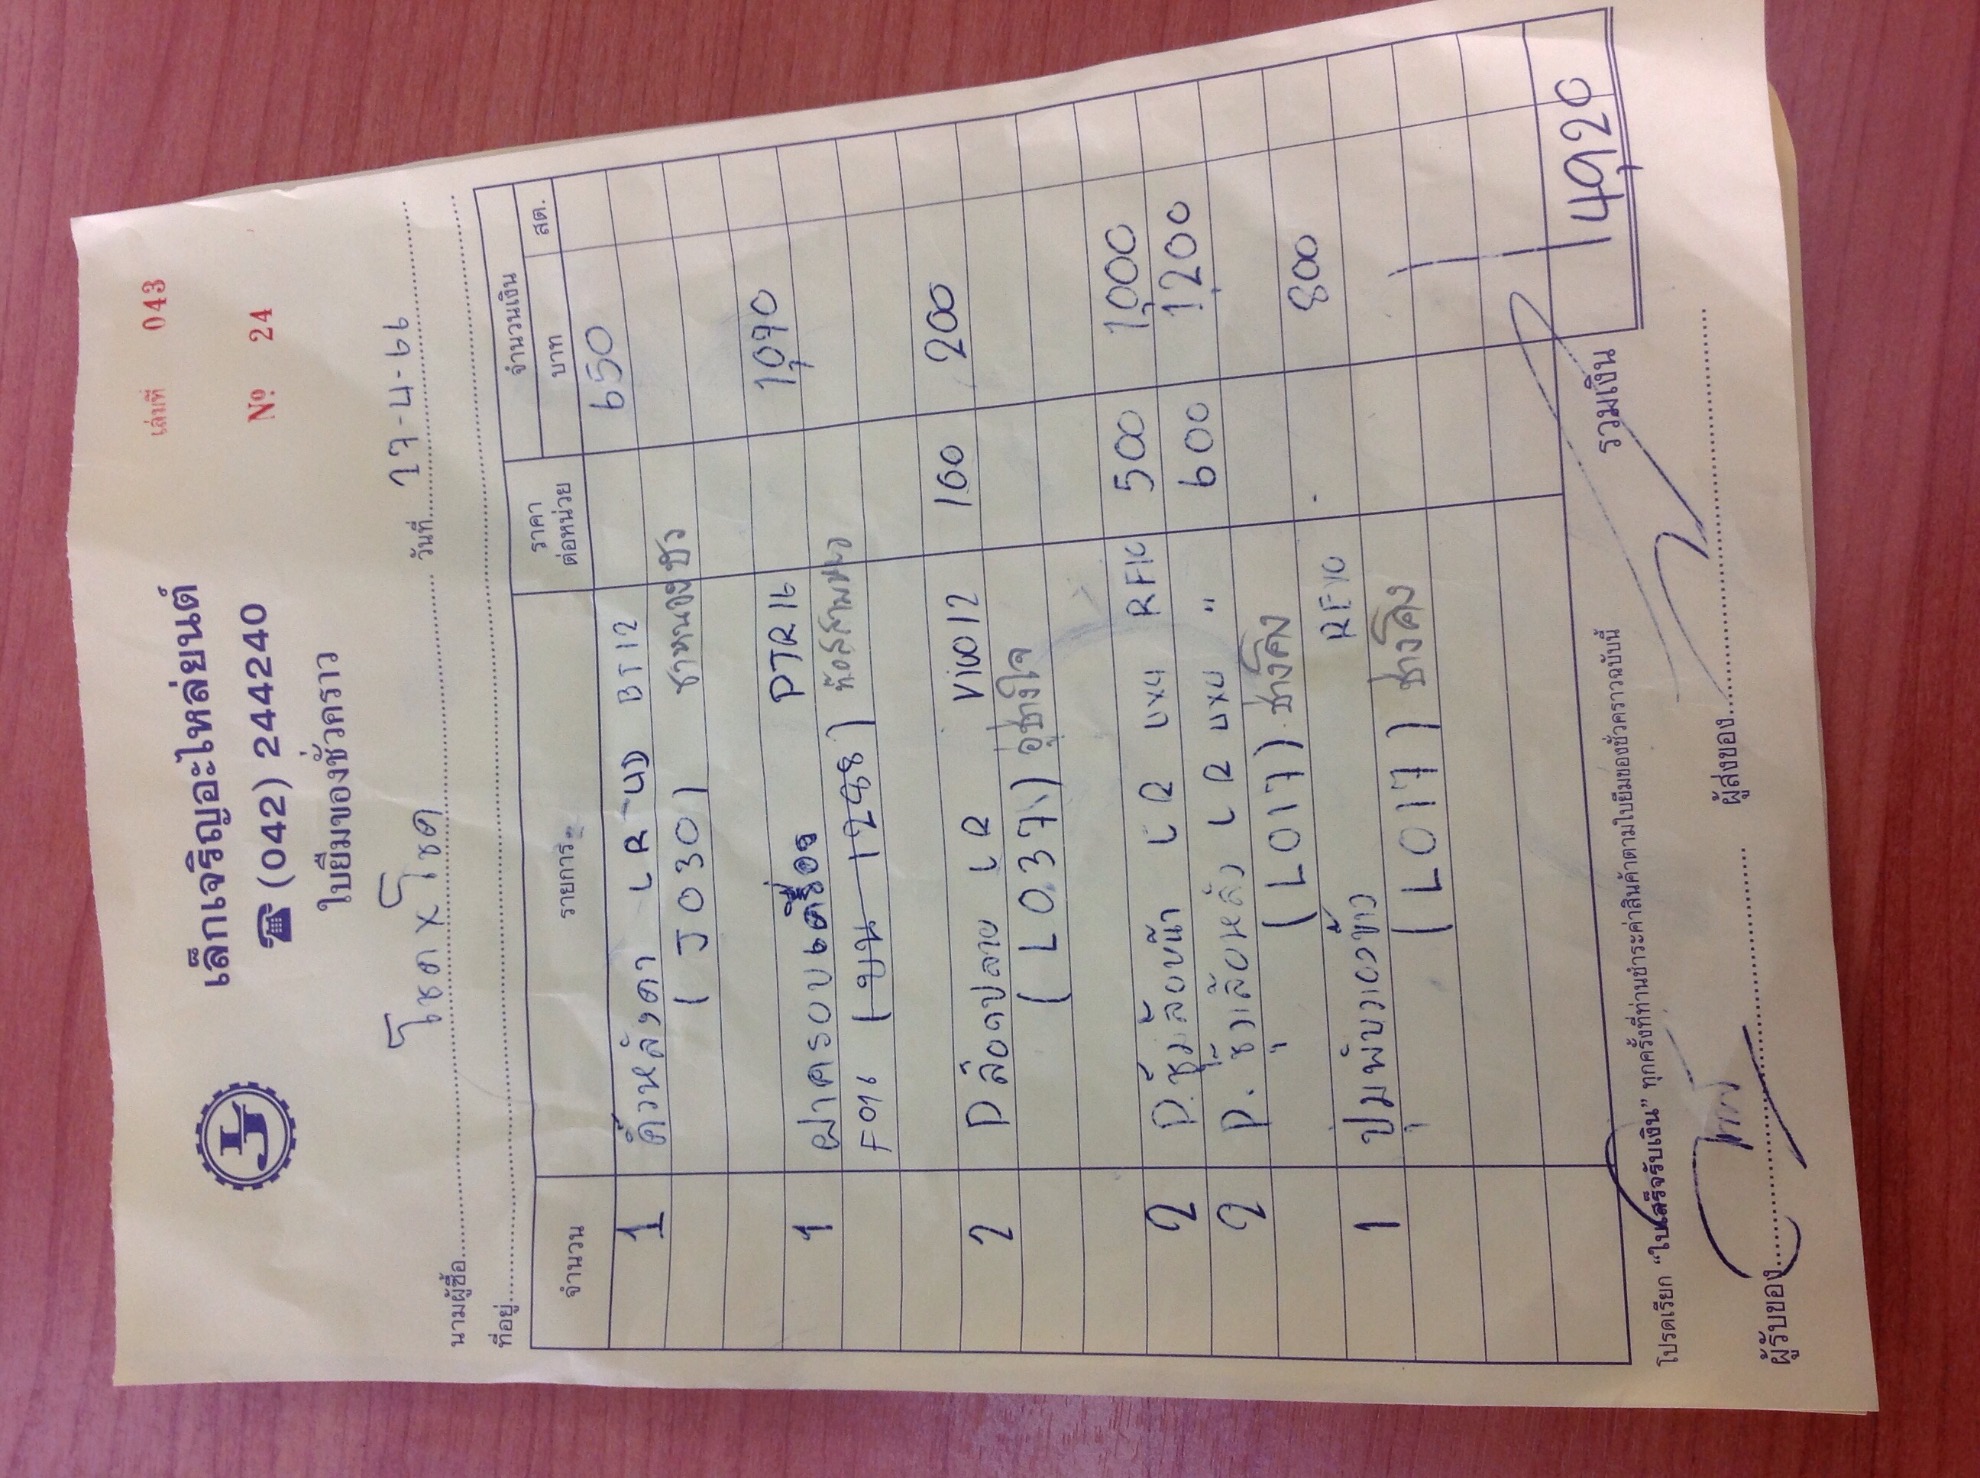 เล่มที่ 043
เล็กเจริญอะไหล่ยนต์
☎ (042) 244240
Nº 24
ใบยืมของชั่วคราว
นามผู้ซื้อ โชค x โชค วันที่ 27-4-66
ที่อยู่
จำนวน รายการ ราคาต่อหน่วย จำนวนเงิน
บาท สต.
1 คิ้วหลังคา LR BT12 650
(J030)
1 ฝาครอบเครื่อง PTR16 1,090
(บน 1288)
2 P ล้อคปลาย LR VIGO12 160 200
(L037) อู่ช่างใจ
2 P.ซุ้มล้อหน้า LR 4x4 500 1,000
2 P. LR 4x4 " 600 1200
(L017) ช่างคิง
1 800
(L017) ช่างคิง
รวมเงิน 4,920
โปรดเรียก “ใบเสร็จรับเงิน” ทุกครั้งที่ท่านชำระค่าสินค้าตามใบยืมของชั่วคราวฉบับนี้
ผู้รับของ ผู้ส่งของ